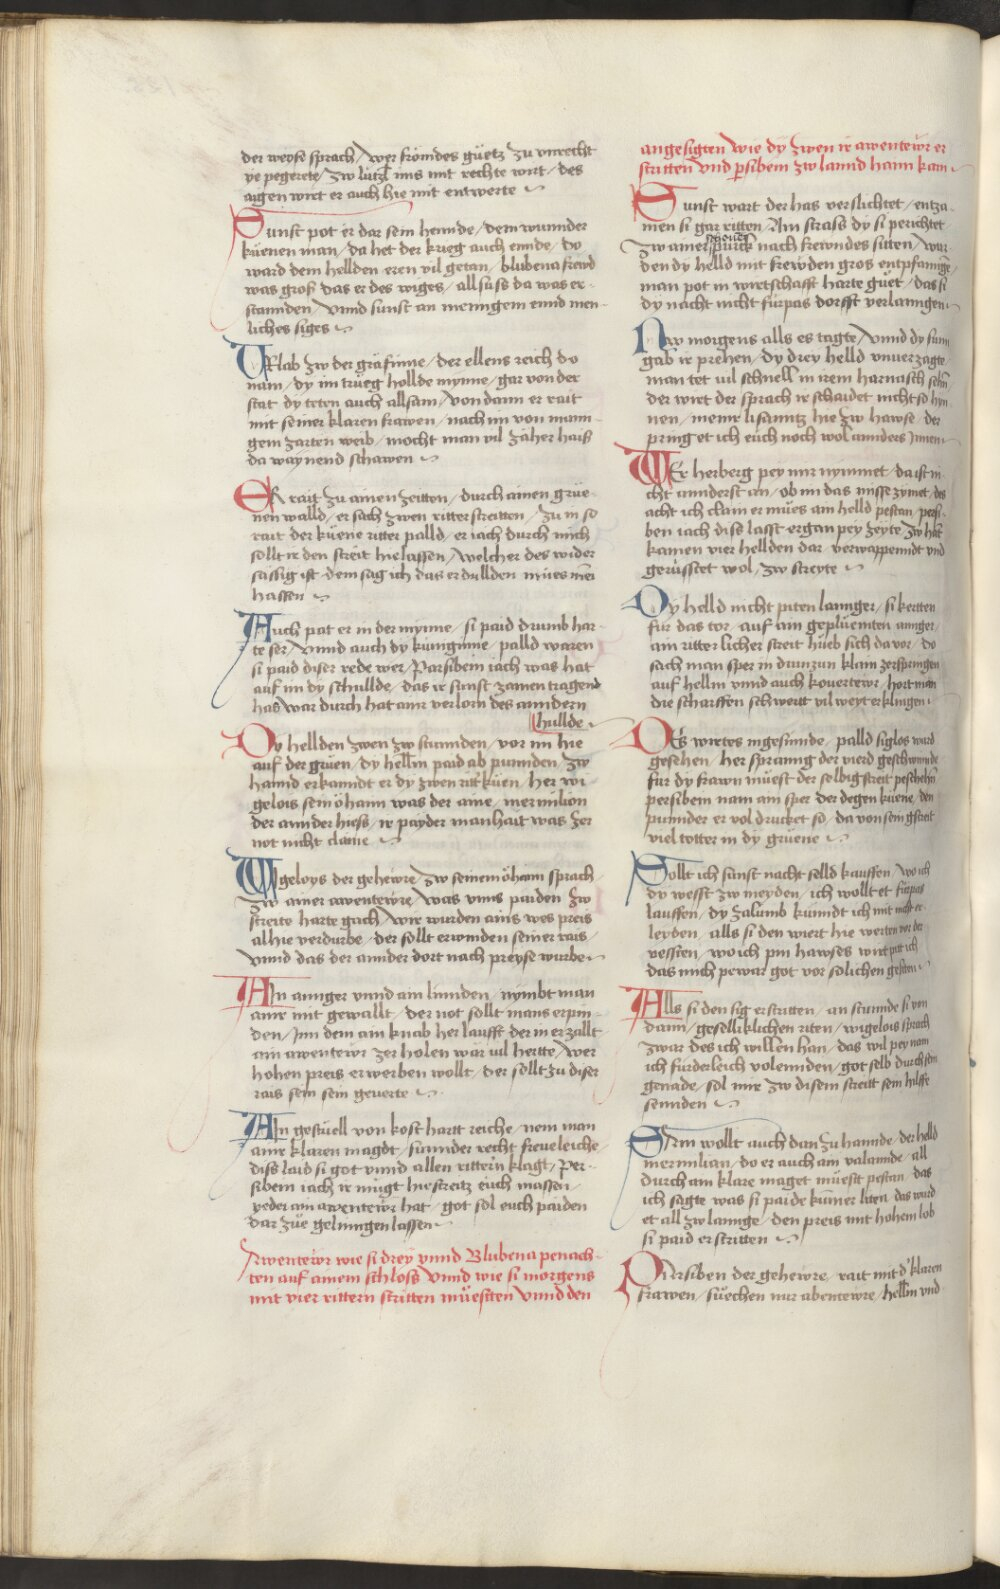 der weyse sprach / wer frömdes güetz zu vnrecht
ye pegerete / zw lützl ims mit rechte wirt / des
aigen wirt er auch hie mit entwerte
Sunst pot er dar sein hennde / dem wunnder
küenen man / da het der krieg auch ennde / dy
ward dem hellden eren vil getan / blubena frewd
was gros das er des wiges / all süss da was er-
stannden / vnnd sunst an mennigem ennd men-
liches siges
Vrlab zw der gräfinne / der ellens reich do
nam / dy im trüeg hollde mynne / gar von der
stat dy teten auch allsam / von dann er rait
mit seiner klaren frawen / nach im von mani-
gem zarten weib / mocht man vil zäher haiss
da waynend schawen
Er rait zu ainen zeitten / durch ainen grüe-
nen walld / er sach zwen ritter streitten / zu in so
rait der küene ritter palld / er iach durch mich
sollt ir den streit hie lassen / welcher des wider
sässig ist / dem sag ich das er dullden mües mein
hassen
Auch pat er in der mynne / si paid drumb har-
te ser / vnnd auch dy künginne / palld waren
si paid diser rede wer / Parsibein iach was hat
auf im dy schullde / das ir sunst zamen tragend
has / war durch hat ainr verlorn des anndern
hullde
Dy hellden zwen zw stunnden / vor im hie
auf der grüen / dy hellm paid ab punnden / zw
hannd erkanndt er dy zwen ritt küen / her wi
gelois sein öhaim was der aine / mermilion
der annder hiess / ir payder manhait was zer
not nicht claine
Wigeloys der gehewre / zw seinem öhaim sprach
zw ainer awentewre / was vnns paiden zw
streite harte gach / wir wurden ains wes preis
alhie verdurbe / der sollt erwinden seiner rais
vnnd das der annder dort nach preyse wurbe
Ain annger vnnd ain linnden / nymbt man
ainr mit gewallt / der not sollt mans erpin-
den / Inn dem ain knab her laufft der in erzallt
ain awentewr zer holen wär vil hertte / wer
hohen preis erwerben wollt / der sollt zu diser
rais sein sein geverte
Ain gestüell von kost hartt reiche / nem man
ainr klaren magdt / sunnder recht freueleiche
diss laid si got vnnd allen rittern klagt / Per-
sibein iach ir mügt hie streitz euch massen
yeder ain awentewr hat / got sol euch paiden
dar züe gelinngen lassen
Awentewr wie si drey vnnd Blubena penach-
ten auf ainem schloss vnnd wie si morgens
mit vier rittern stritten müessten vnnd den
angesigten wie dy zwen ir awentewr er
stritten vnd persibein zw lannd haim kam
Sunst wart der has verslichtet / entza-
men si gar ritten / Am strass dy si perichtet
zw ainer schönen purck nach frewndes sitten / wur
den dy helld mit frewden gros entpfanngen
man pot in wirtschafft harte güet / das si
dy nacht nicht fürpas dorfft verlanngen
Nw morgens alls es tagte / vnnd dy sunn
gab ir prehen / dy drey helld vnuerzagte
man tet vil schnell in irem harnasch sehn
der wirt der sprach ir schaidet nicht so hyn
nen / meinr lisanntz hie zw hawse / der
pringet ich euch noch wol annders innen
Wer herberg pey mir nymmet / da ist ni-
cht annderst an / ob im das misse zymet / des
acht ich clain er mües am helld pestan / persi-
ben iach diss lasst ergan pey zeyte / zw hat
kamen vier hellden dar / verwappenndt vnd
gerüsstet wol / zw streyte
Dy helld nicht piten lannger / si kertten
für das tor / auf ain geplüemten annger /
ain ritterlicher streit hüeb sich da vor / do
sach man sper in drunzun klain zerspringen
auf hellm vnnd auch kouertewr / hort man
die scharffen schwertt vil weyt erklingen
Des wirtes ingesinnde / palld siglos ward
gesehen / her spranng der vierd geschwinnde
für dy frawn müest der selbig streit peschehn
persibein nam ain sper der degen küene / den
punnder er vol drucket so / da von sein gstreit
viel totter in dy grüene
Sollt ich sunst nacht selld kauffen / wo ich
dy wesst zw meyden / ich wollt et fürpas
lauffen / dy zalumb künndt ich mit nicht er-
leyden / alls si den wiert hie werten vor der
vessten / wo ich pin hawses wirt pitt ich
das mich pewar got vor solichen gessten
Alls si den sig erstritten / an stunnde si von
dann / geselliklichen riten / wigelois sprach
zwar des ich willen han / das wil pey nam
ich fürderleich volennden / got selb durch sein
genade / sol mir zw disem streitt sein hilffe
sennden
Sam wollt auch dan zu hannde / der helld
mermilian / do er auch am valannde / all
durch ain klare maget müesst pestan / das
ich sagte was si paide kumer liten / das wurd
et all zw lannge / den preis mit hohem lob
si paid erstritten
Persiben der gehewre / rait mit d' klaren
frawen / süechen nur abentewre / hellm vnd